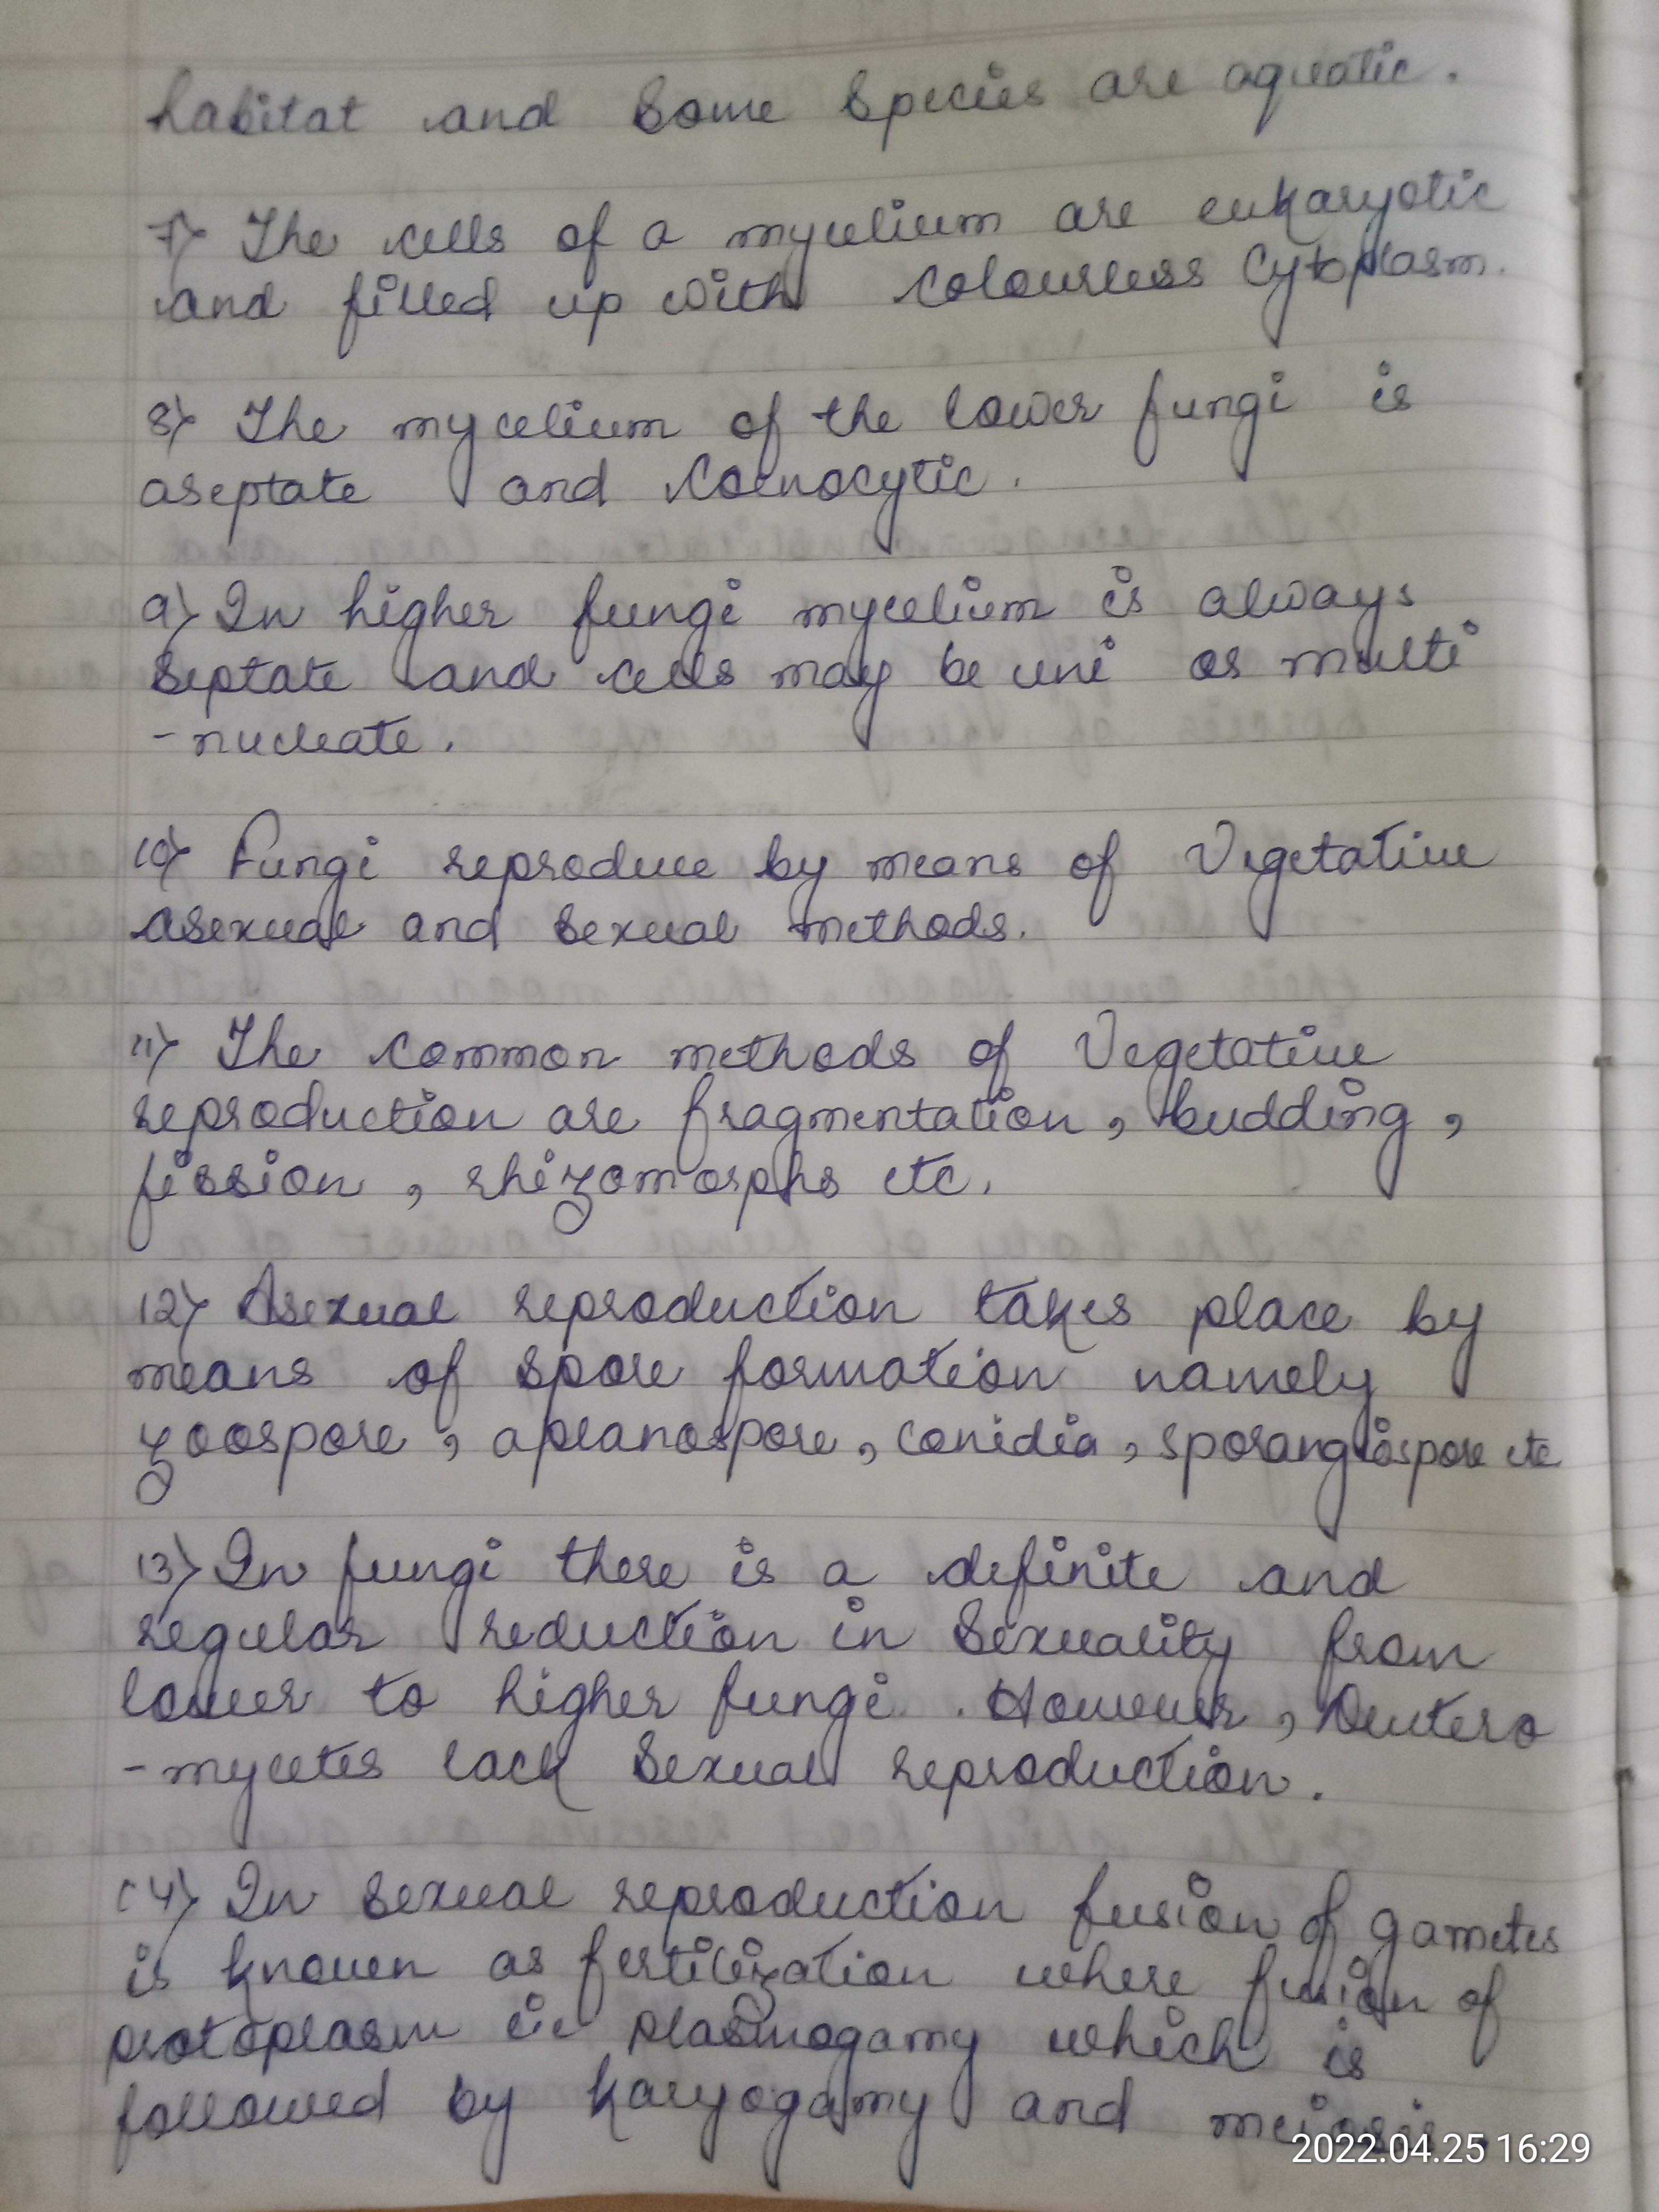 habitat and some species are aquatic.
7) The cells of a mycelium are eukaryotic
and filled up with colourless cytoplasm.
8) The mycelium of the lower fungi is
aseptate and Coenocytic.
9) In higher fungi mycelium is always
septate and cells may be uni or multi
-nucleate.
10) Fungi reproduce by means of Vegetative
asexual and sexual methods.
11) The common methods of Vegetative
reproduction are fragmentation, budding,
fission, rhizomorphs etc.
12) Asexual reproduction takes place by
means of spore formation namely
zoospore, aplanospore, conidia, sporangiospore etc
13) In fungi there is a definite and
regular reduction in sexuality from
lower to higher fungi. However, Deutero
-mycetes lack sexual reproduction.
14) In sexual reproduction fusion of gametes
is known as fertilization where fusion of
protoplasm i.e plasmogamy which is
followed by karyogamy and meiosis.
2022.04.25 16:29